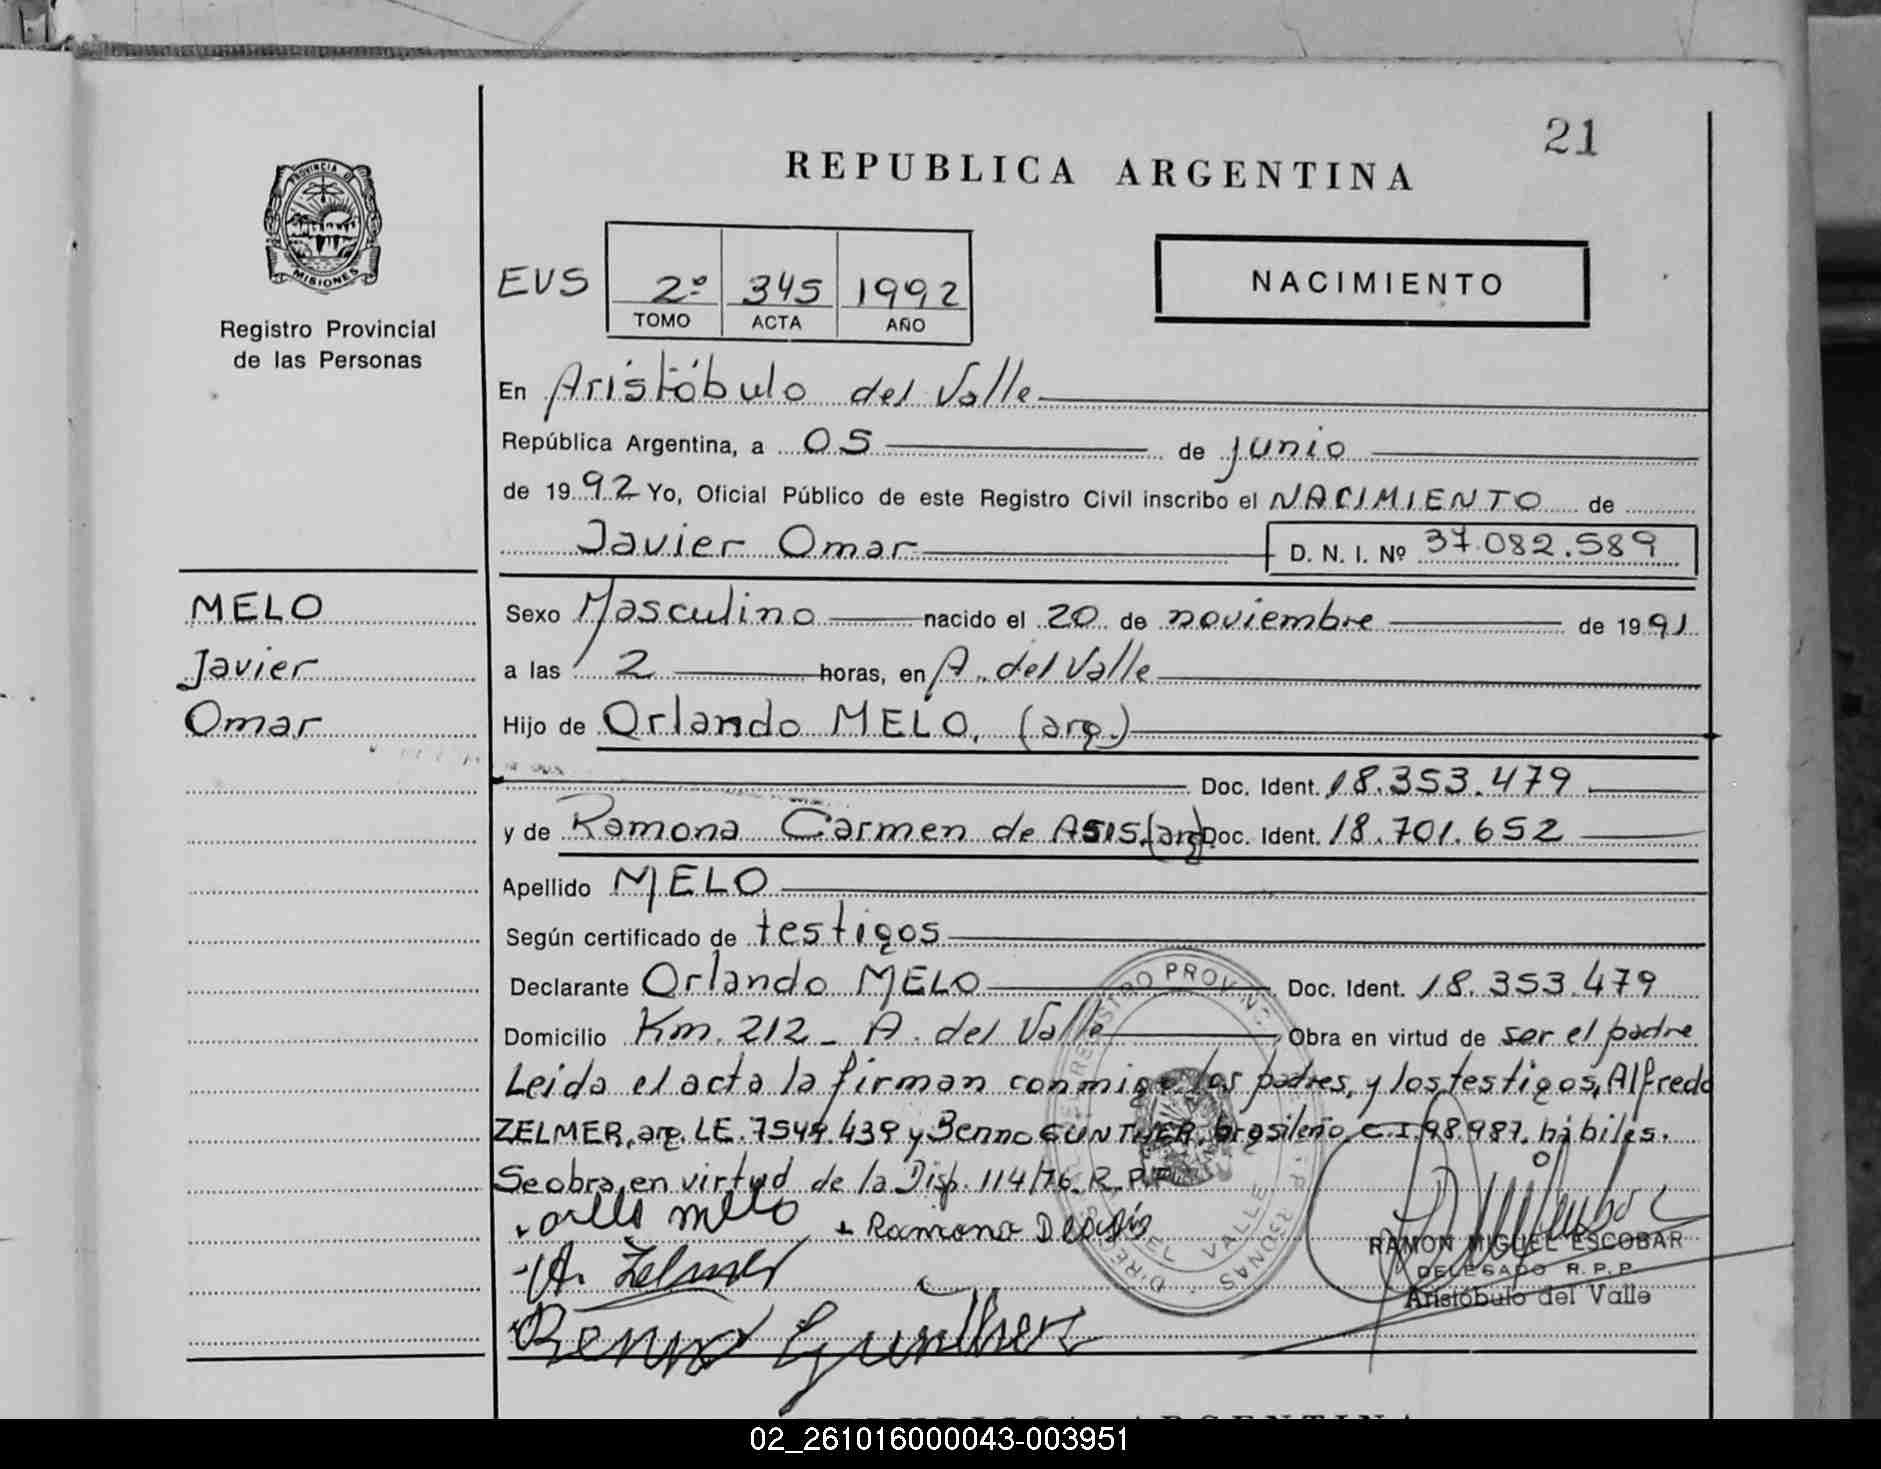 21
REPUBLICA ARGENTINA
PROVINCIA DE MISIONES
Registro Provincial
de las Personas
EVS 2º 345 1992
TOMO ACTA AÑO
NACIMIENTO
En Aristóbulo del Valle
República Argentina, a 05 de junio
de 1992 Yo, Oficial Público de este Registro Civil inscribo el NACIMIENTO de
Javier Omar D. N. I. Nº 37.082.589
MELO
Javier
Omar
Sexo Masculino nacido el 20 de noviembre de 1991
a las 2 horas, en A. del Valle
Hijo de Orlando MELO, (arg.)
Doc. Ident. 18.353.479
y de Ramona Carmen de ASIS (arg) Doc. Ident. 18.701.652
Apellido MELO
Según certificado de testigos
Declarante Orlando MELO Doc. Ident. 18.353.479
Domicilio Km. 212 - A. del Valle Obra en virtud de ser el padre
Leida el acta la firman conmigo los padres, y los testigos, Alfredo
ZELMER, arg. LE. 7549.439 y Benno GUNTHER, brasileño C.I. 98.987. hábiles.
Se obra en virtud de la Disp. 114/76 R.P.P
melo + Ramona
A. Zelmer
Benno Günther
RAMON MIGUEL ESCOBAR
DELEGADO R.P.P.
Aristóbulo del Valle
REPUBLICA ARGENTINA
02_261016000043-003951